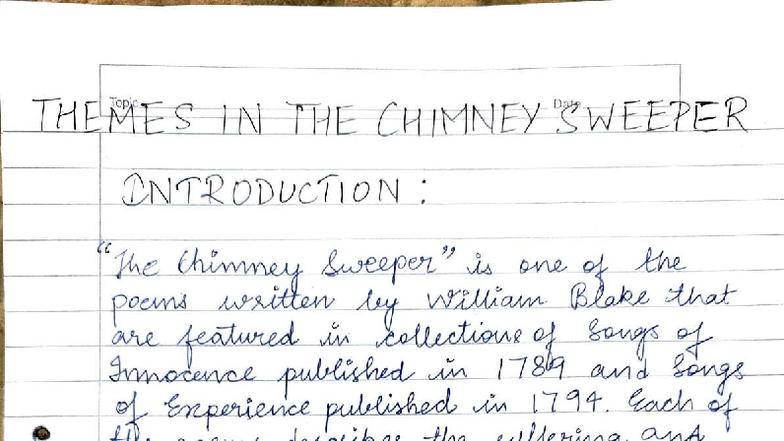 Topic
Date
THEMES IN THE CHIMNEY SWEEPER
INTRODUCTION :
"The Chimney Sweeper" is one of the
poems written by William Blake that
are featured in collections of Songs of
Innocence published in 1789 and Songs
of Experience published in 1794. Each of
the poems describe the suffering and